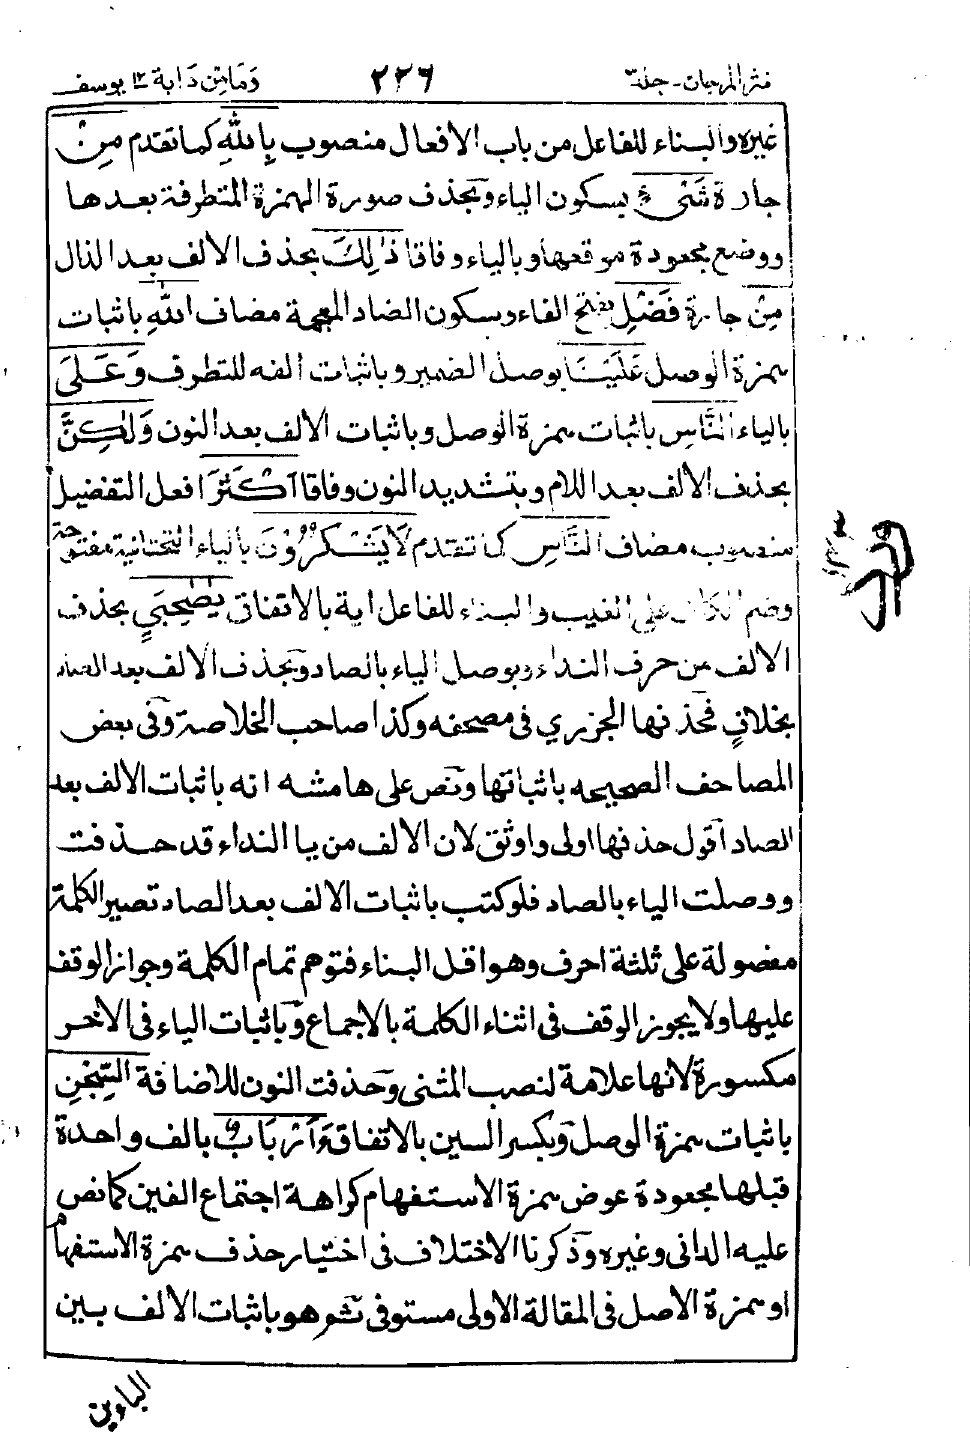 نثر المرجان - جلد ٣ ٢٢٦ وما من دابة ١٢ يوسف
غيره والبناء للفاعل من باب الافعال منصوب بِاللّٰهِ كما تقدم مِنْ
جارة شَیْءٍ بسكون الياء وبحذف صورة الهمزة المتطرفة بعدها
ووضع مجعودة موقعها وبالياء وفاقا ذٰلِكَ بحذف الالف بعد الذال
مِنْ جارة فَضْلِ بفتح الفاء وسكون الضاد المعجمة مضاف اللّٰهِ باثبات
همزة الوصل عَلَيْنَا بوصل الضمير وباثبات الفه للتطرف وَعَلَى
بالياء النَّاسِ باثبات همزة الوصل وباثبات الالف بعد النون وَلٰكِنَّ
بحذف الالف بعد اللام وبتشديد النون وفاقا اَكْثَرَ افعل التفضيل
منصوب مضاف النَّاسِ كما تقدم لَا يَشْكُرُوْنَ بالياء التحتانية مفتوحة
وضم الكاف على الغيب والبناء للفاعل اية بالاتفاق يٰصٰحِبَيِ بحذف
الالف من حرف النداء وبوصل الياء بالصاد وبحذف الالف بعد الصاد
بخلافٍ فحذفها الجزري في مصحفه وكذا صاحب الخلاصة وفي بعض
المصاحف الصحيحه باثباتها ونص على هامشه انه باثبات الالف بعد
الصاد اقول حذفها اولى واوثق لان الالف من يا النداء قد حذفت
ووصلت الياء بالصاد فلو كتب باثبات الالف بعد الصاد تصير الكلمة
مفصولة على ثلثة احرف وهو اقل البناء فتوهم تمام الكلمة وجواز الوقف
عليها ولا يجوز الوقف في اثناء الكلمة بالاجماع وباثبات الياء في الاخر
مكسورة لانها علامة لنصب المثنى وحذفت النون للاضافة السِّجْنِ
باثبات همزة الوصل وبكسر السين بالاتفاق ءَاَرْبَابٌ بالف واحدة
قبلها مجعودة عوض همزة الاستفهام كراهة اجتماع الفين كما نص
عليه الداني وغيره وذكرنا الاختلاف في اختيار حذف همزة الاستفهام
او همزة الاصل في المقالة الاولى مستوفى ثم هو باثبات الالف بين
البائين